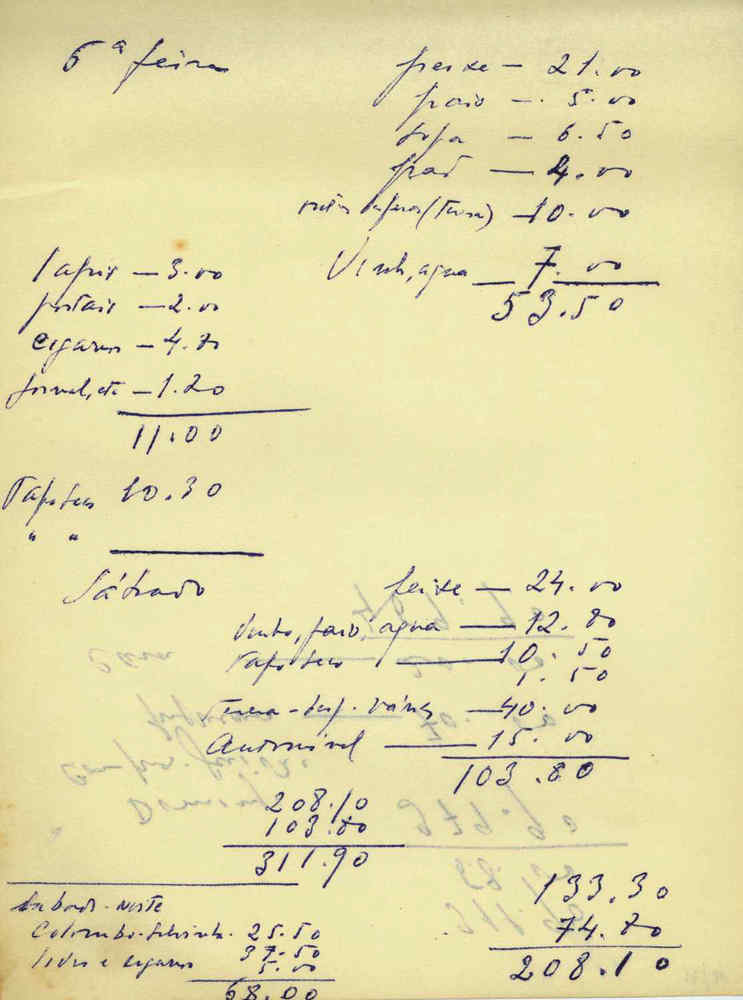 6ª feira
peixe — 21.00
paio — 5.00
sopa — 6.50
pão — 4.00
(Teresa) — 10.00
Vinho, agua — 7.00
53.50
lapis — 3.00
postais — 2.00
Cigarros — 4.80
Jornal, etc — 1.20
11.00
Papo seco 10.30
" "
Sábado
peixe — 24.00
Vinho, paio, agua — 12.80
Papo seco — 10.50
1.50
Teresa - desp. várias — 40.00
Automóvel — 15.00
103.80
208.10
103.80
311.90
Sabado - noite
Colombo 25.50
37.50
e cigarros 5.00
68.00
133.30
74.80
208.10